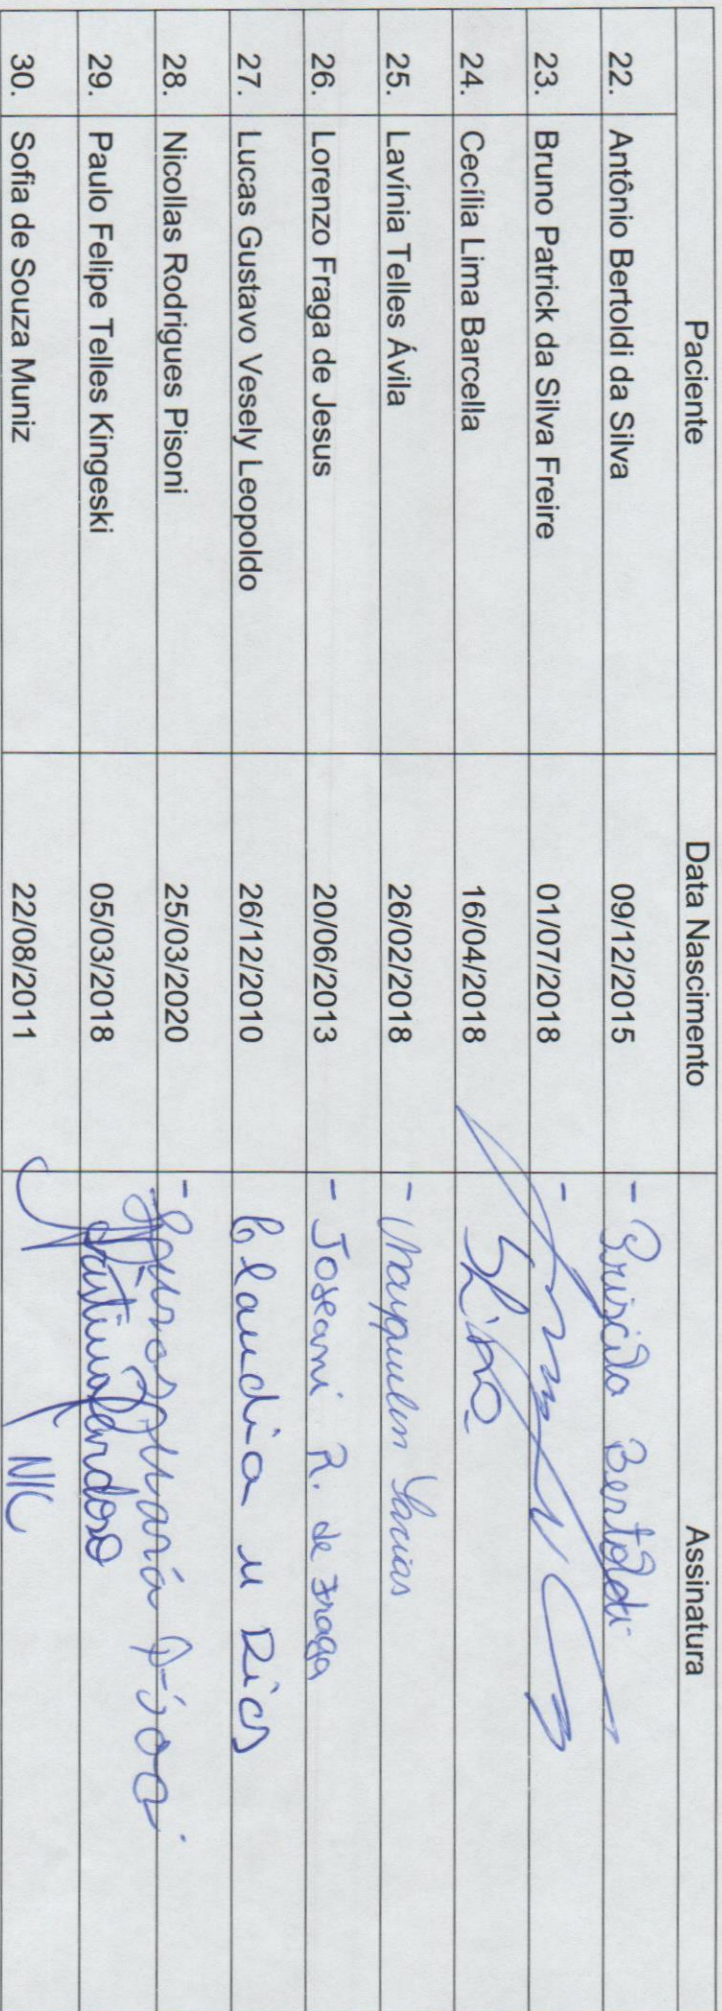 Paciente Data Nascimento Assinatura
22. Antônio Bertoldi da Silva 09/12/2015 - Priscila Bertoldi
23. Bruno Patrick da Silva Freire 01/07/2018 -
24. Cecília Lima Barcella 16/04/2018
25. Lavínia Telles Ávila 26/02/2018 -
26. Lorenzo Fraga de Jesus 20/06/2013 - Joseani R. de Fraga
27. Lucas Gustavo Vesely Leopoldo 26/12/2010 Claudia M Dias
28. Nicollas Rodrigues Pisoni 25/03/2020 -
29. Paulo Felipe Telles Kingeski 05/03/2018 - Cardoso
30. Sofia de Souza Muniz 22/08/2011